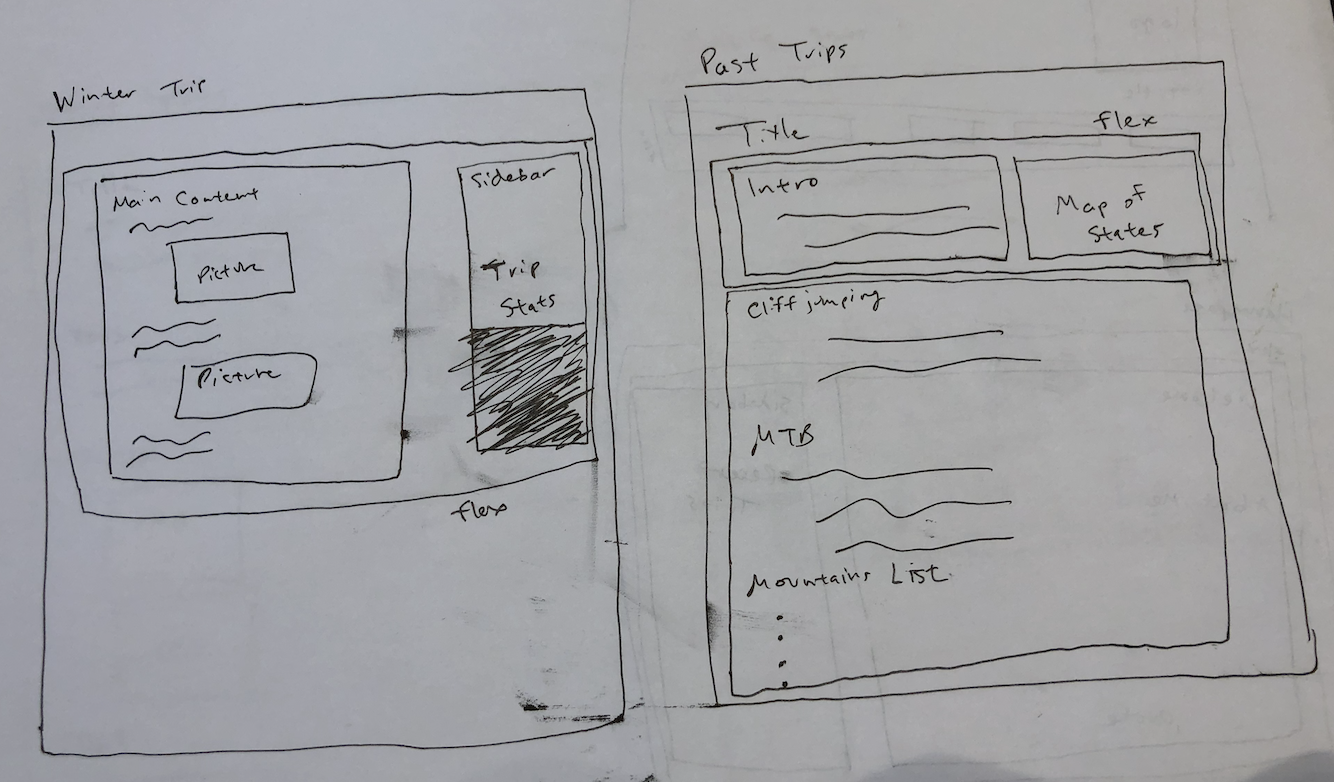 Winter Trip
Main Content
Picture
Picture
Sidebar
Trip
Stats
flex
Past Trips
Title
flex
Intro
Map of
States
Cliff jumping
MTB
Mountains List